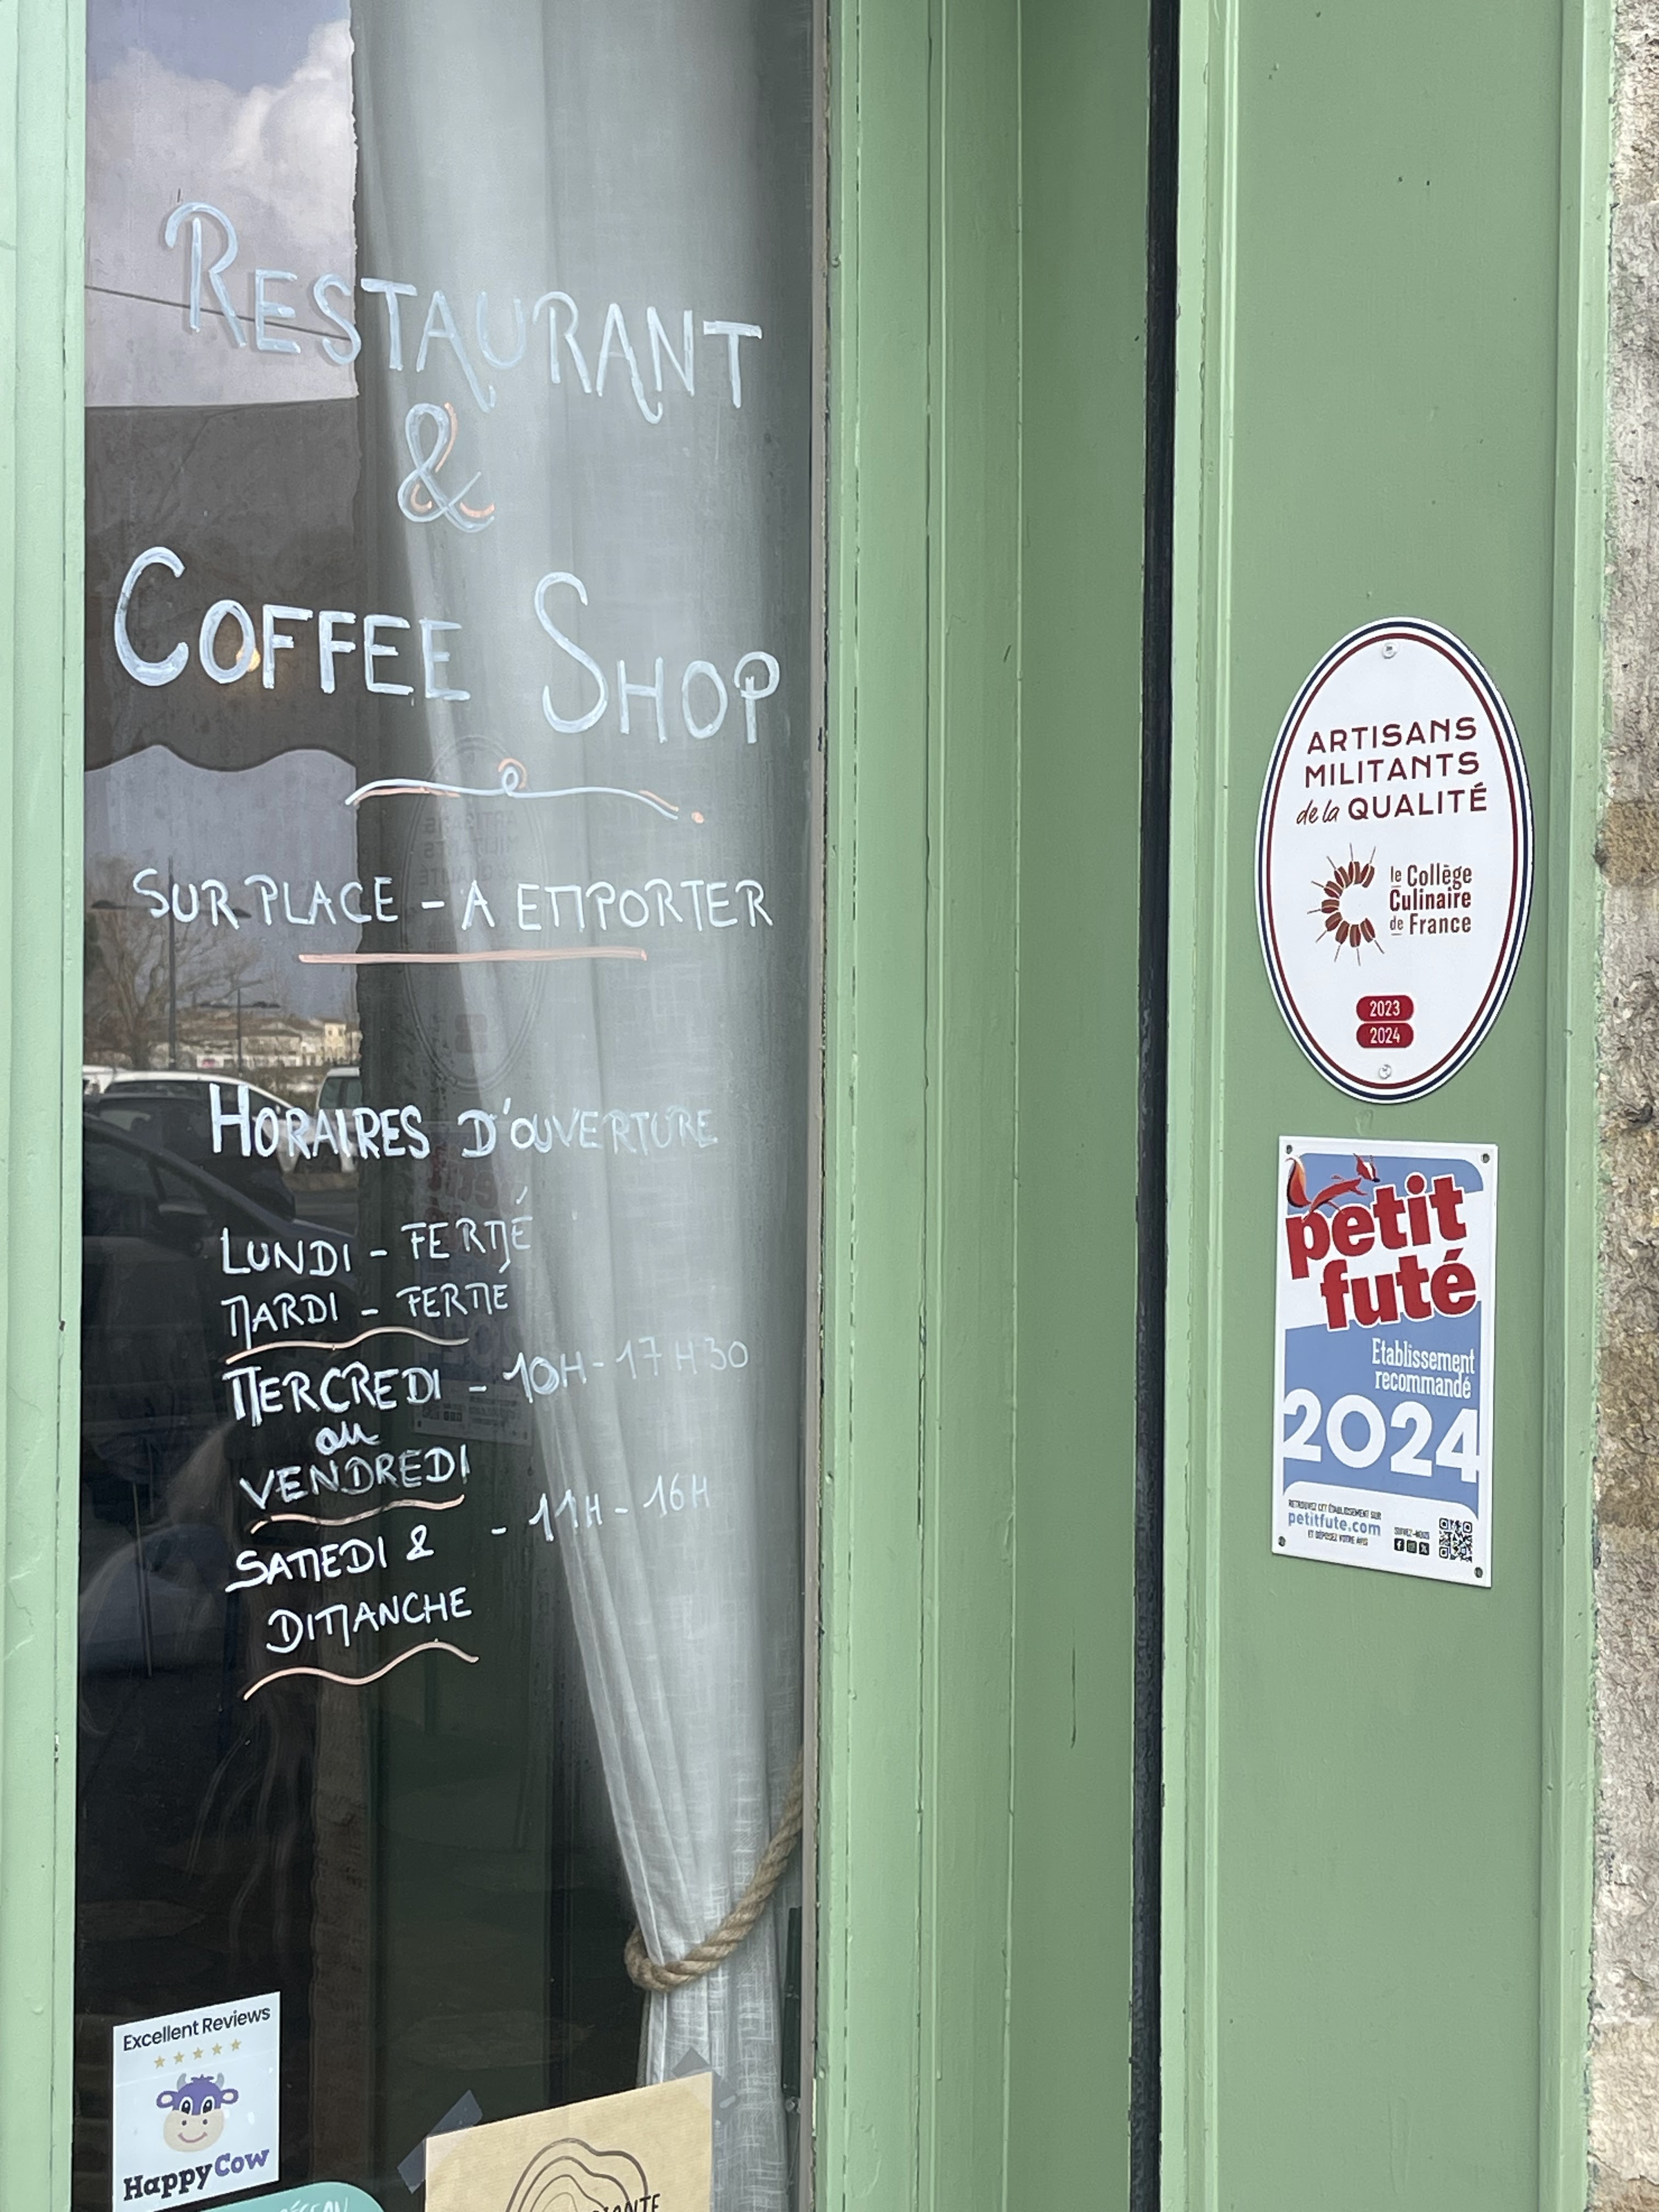 RESTAURANT
&
COFFEE SHOP
SUR PLACE - A EMPORTER
HORAIRES D'OUVERTURE
LUNDI - FERMÉ
MARDI - FERME
MERCREDI - 10H - 17H30
au
VENDREDI
SAMEDI & - 11H - 16H
DIMANCHE
Excellent Reviews
HappyCow
ARTISANS
MILITANTS
de la QUALITÉ
le Collège
Culinaire
de France
2023
2024
petit
futé
Etablissement
recommandé
2024
RETROUVEZ CET ÉTABLISSEMENT SUR
petitfute.com
ET DÉPOSEZ VOTRE AVIS
SUIVEZ-NOUS